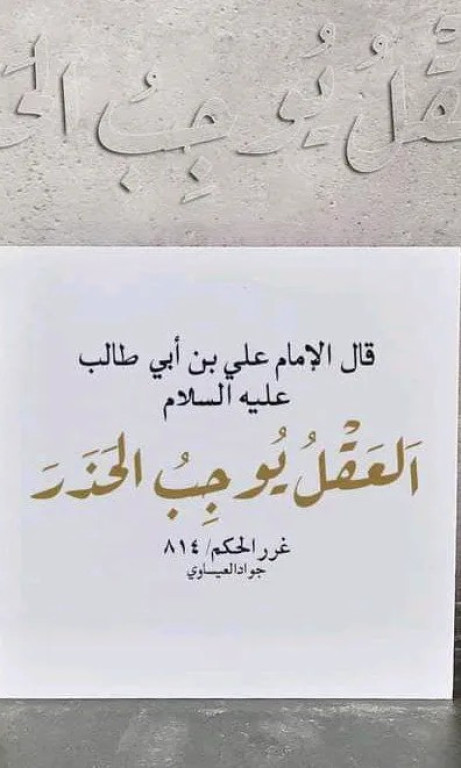 قْلُ يُوجِبُ الحَ
قال الإمام علي بن أبي طالب
عليه السلام
اَلعَقْلُ يُوجِبُ الحَذَرَ
غرر الحكم/ ٨١٤
جواد العيساوي